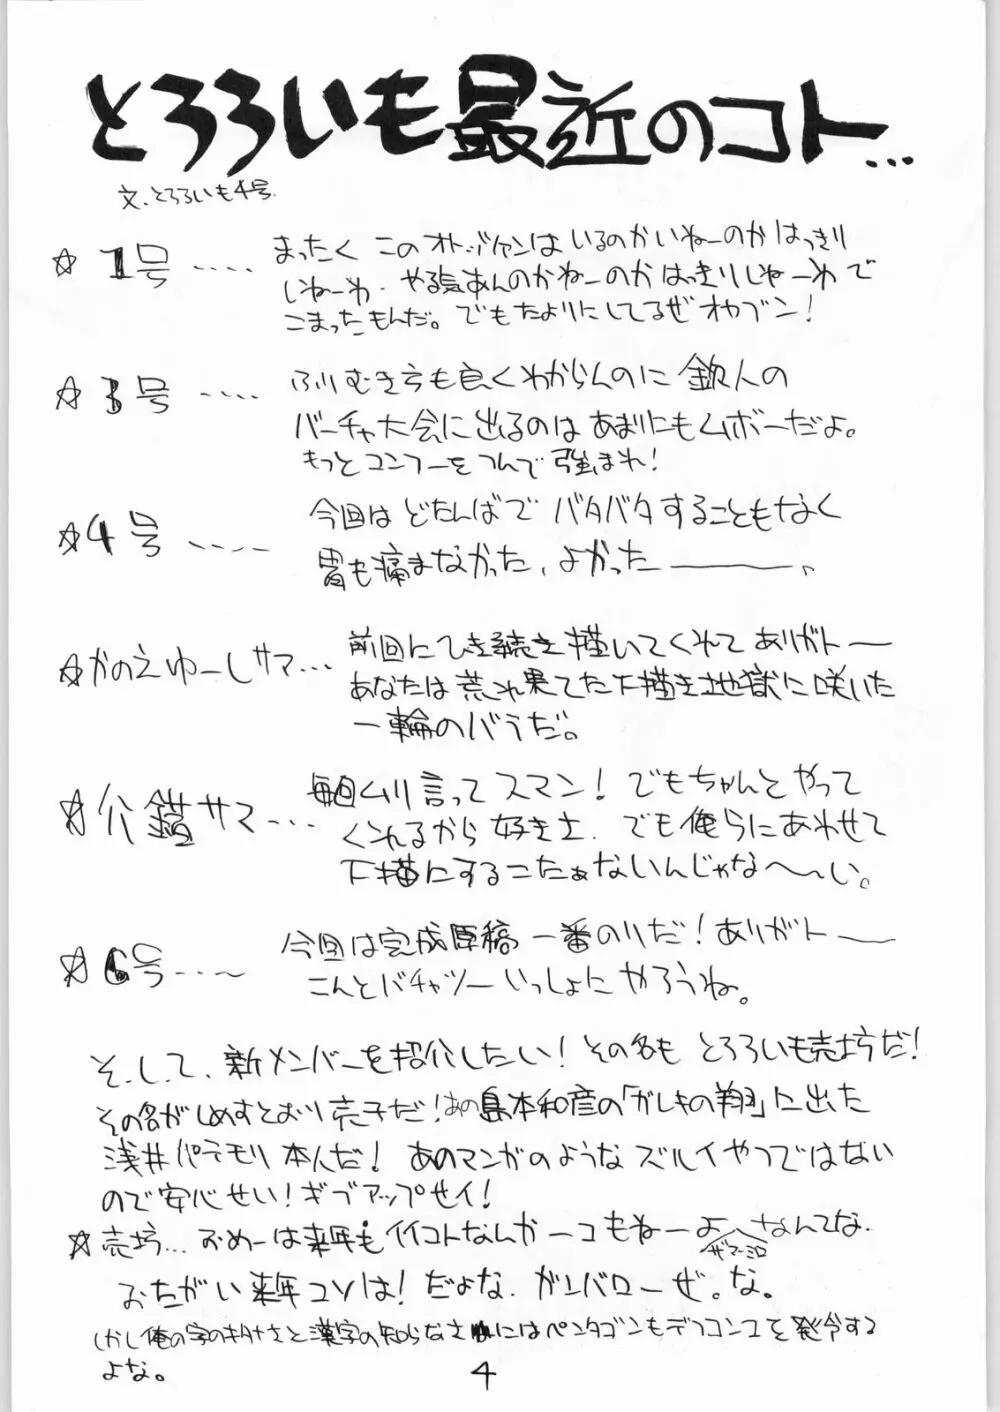 とろろいも最近のコト...
文.とろろいも4号.
☆1号.....
まったく このオトッツァンはいるのかいねーのかはっきり
しねーわ.やる気あんのかねーのかはっきりしねーわで
こまったもんだ。でもたよりにしてるぜオヤブン!
☆3号.....
ふりむき方も良くわからんのに鉄人の
バーチャ大会に出るのはあまりにもムボーだよ。
もっとコンフーをつんで強まれ!
☆4号.....
今回はどたんばでバタバタすることもなく
胃も痛まなかった、よかったー。
☆かのえゆーしサマ...
前回にひき続き描いてくれてありがトー
あなたは荒れ果てた下描き地獄に咲いた
一輪のバラだ。
☆介錯サマ...
毎回ムリ言ってスマン!でもちゃんとやって
くれるから好きさ.でも俺らにあわせて
下描にするこたぁないんじゃな〜い。
☆6号....
今回は完成原稿一番のりだ!ありがトー
こんどバチャツーいっしょにやろうね。
そ.し.て.新メンバーを紹介したい!その名もとろろいも売坊だ!
その名がしめすとおり売子だ!あの島本和彦の「ガレキの翔」に出た
浅井パテモリ本人だ!あのマンガのようなズルイやつではない
ので安心せい!ギブアップせイ!
☆売坊...おめーは来年もイイコトなんか一コもねーよ なんてな.
ザマーミロ
おたがい来年コソは!だよな.ガンバローぜ。な。
しかし俺の字のキタナさと漢字の知らなさにはペンタゴンもデフコン2を発令する
よな。
4